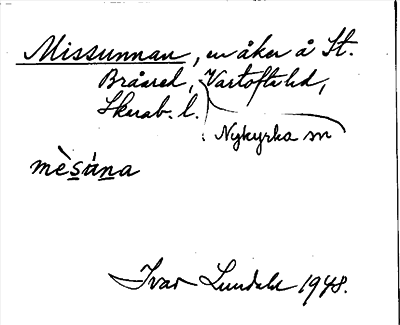 Missunnan, en åker å St.
Bråared, Vartofta hd,
Skarab. l.
Nykyrka sn
mèsúna
Ivar Lundahl 1948.